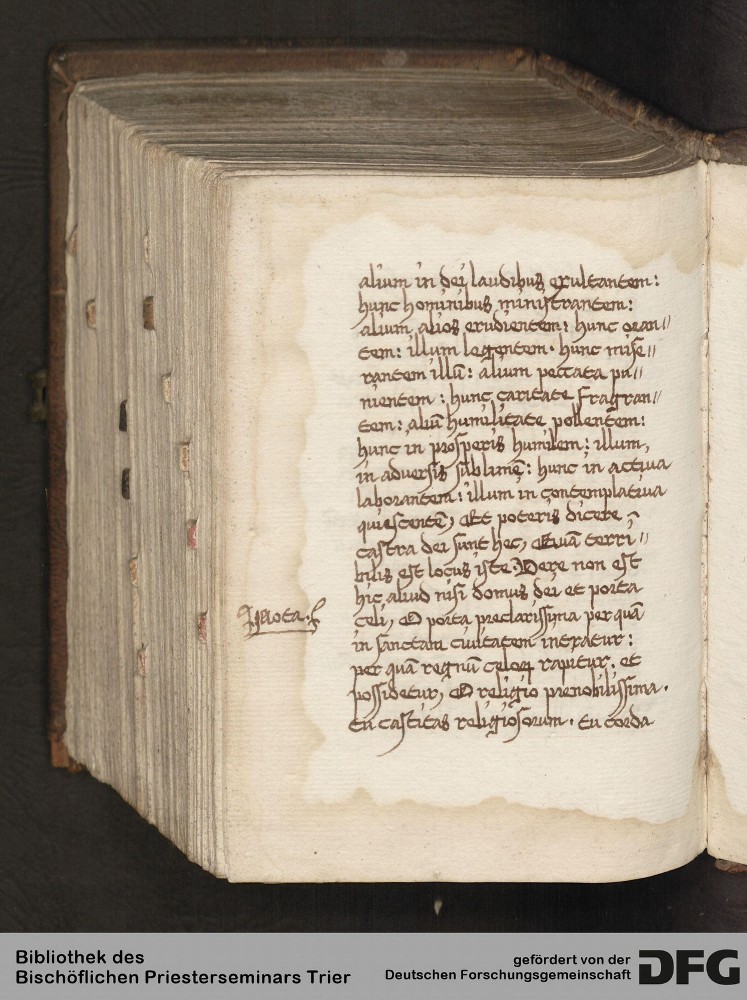 alium in dei laudibus exultantem:
hunc hominibus ministrantem:
alium alios erudientem: hunc oran//
tem: illum legentem. hunc mise//
rantem illū: alium peccata pu//
nientem: hunc caritate fragran//
tem: aliū humilitate pollentem:
hunc in prosperis humilem: illum,
in adversis sublimē: hunc in activa
laborantem: illum in contemplativa
quiescentē, Et poteris dicere,
castra dei sunt hec, Quā terri//
bilis est locus iste. Vere non est
hic aliud nisi domus dei et porta
Nota.
celi, O porta preclarissima per quā
in sanctam civitatem intratur:
per quā regnū celoꝝ rapitur. et
possidetur, O religio prenobilissima.
tu castitas religiosorum. tu corda
Bibliothek des
Bischöflichen Priesterseminars Trier
gefördert von der
Deutschen Forschungsgemeinschaft
DFG